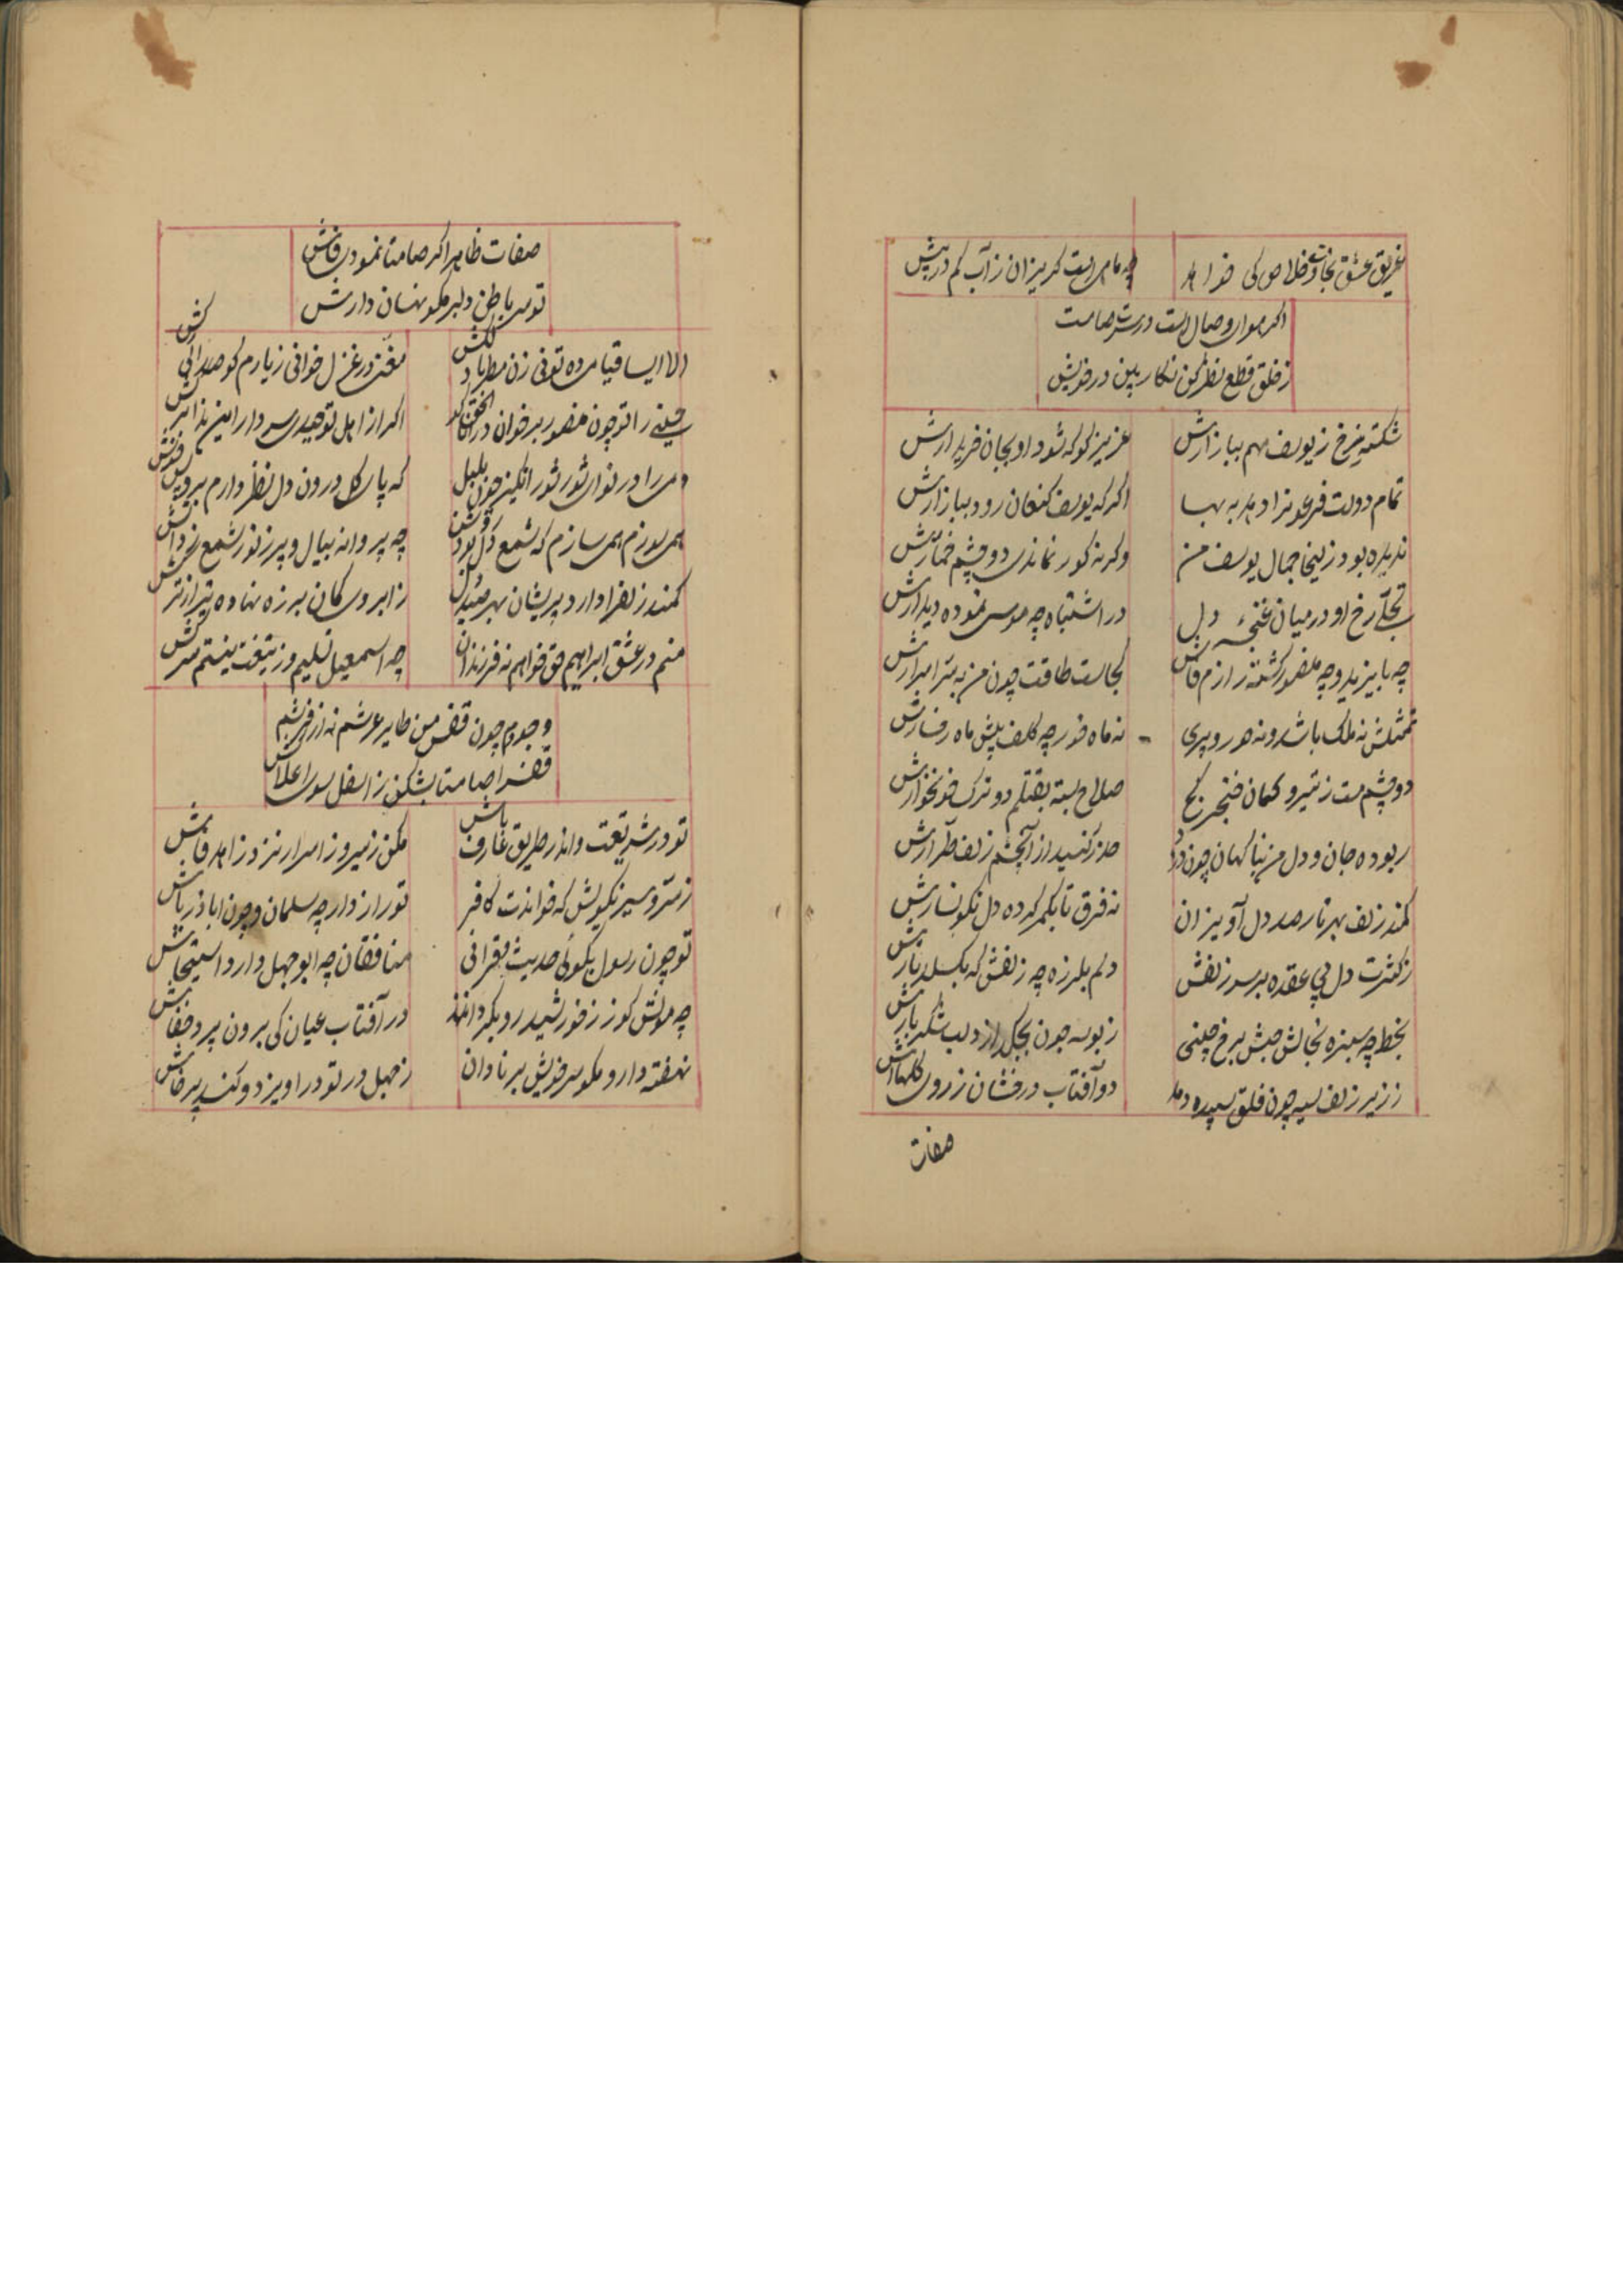 غریق عشق نجات و خلاص کی خواهد
چه ماهی است گریزان ز آب کم در پیش
اکر هوای وصال است در سرت صامت
ز خلق قطع نظر کن نکار بین در خویش
شکسته نرخ ز یوسف مهم ببازارش
عزیز کو که شود او بجان خریدارش
تمام دولت فرعونرا دهد به بها
اکر که یوسف کنعان رود ببازارش
ندیده بود زلیخا جمال یوسف من
وکرنه کور نماندی دو چشم خمارش
تجلّی رخ او در میان غنچهٔ دل
در اشتباه چه موسی نموده دیدارش
چه بایزید و چه منصور کشته رازم فاش
کجاست طاقت چون من به ستر اسرارش
تمثلش نه ملک باشد و نه حور و پری
نه ماه خور چه کلف پیش ماه رخسارش
دو چشم مست ز تیر و کمان خنجر کج
صلاح بسته بقتلم دو ترک خونخوارش
ربوده جان و دل من بناکهان چون دزد
حذر کنید از آنچشم زلف طرارش
کمند زلف بهر تار صد دل آویزان
نه فرق تا بکمر کرده دل نکونسارش
ز کثرت دل پی عقده بر سر زلفش
دلم بلرزه چه زلفش که بکسلد تارش
بخط چه سبزه بخالش حبش برخ چینی
ز بوسه چون بچکد از دو لب شکر بارش
ز زیر زلف سیه چون فلق سپیده دمد
دو آفتاب درخشان ز روی کلهاش
صفات
صفات ظاهر اکر صامتا نمودی فاش
توسر باطن دلبر مکو نهان دارش
الا ایساقیا می ده تونی زن مطربا دلکش
مغنی در غزل خوانی ز یارم کو صدرا کش
حسینی را تو چون منصور بر خوان در انا الحق
اکر از اهل توحیدی سر دار این ندا
دمی را در نوای شور شور انکیز چون بلبل
که پا در کل درون دل نظر دارم بروی
همی سوزم همی سازم که شمع دل بود روشن
چه پروانه ببال و پر ز نور شمع
کمند زلفرا دارد پریشان بهر صید دل
ز ابروی کمان بر زه نهاده تیر از
منم در عشق ابراهیم حق خواهم نه فرزندان
چه اسمعیل تسلیم و ز تیغت نیستم سرکش
وجودم چون قفس من طایر عرشم نه از فرشم
قفسرا صامتا بشکن ز اسفل سوی اعلا
تو در شریعت و اندر طریق عارف باش
مکن ز سیر و ز اسرار نزد زاهد فاش
ز ستر و سیر نکویش که خواندت کافر
تو راز دار چه سلمان و چون اباذر باش
تو چون رسول بکوئی حدیث معرانی
منافقان چه ابوجهل دارد استیحاش
چه موش کور ز خورشید رو بکرداند
در آفتاب عیان کی برون پرد خفاش
نهفته دار و مکو سر خویش بر نادان
ز جهل در تو در آویزد و کند پرخاش